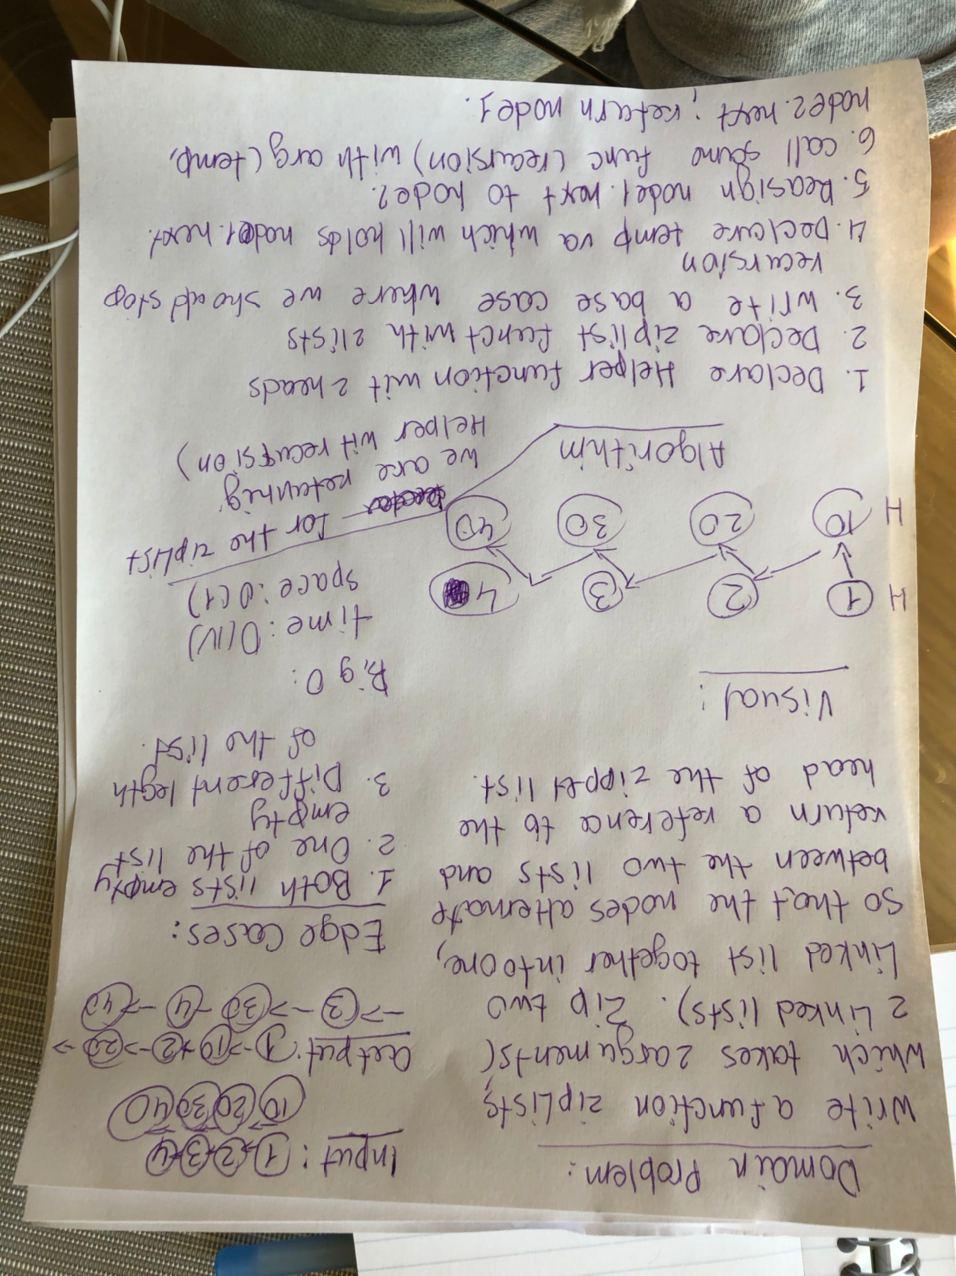 Domain Problem:
Write a function ziplists
which takes 2 arguments(
2 Linked lists). Zip two
Linked list together into one,
so that the nodes alternate
between the two lists and
return a reference to the
head of the zipped list.
Input: 1 2 3 4
10 20 30 40
output: 1 -> 10 -> 2 -> 20 ->
-> 3 -> 30 -> 4 -> 40
Edge Cases:
1. Both lists empty
2. One of the list
empty
3. Different legth
of the list.
Visual:
H 1 2 3 4
H 10 20 30 40
Big O:
time: O(N)
Space: O(1)
for the ziplist
we are returning
Helper wit recursion)
Algorithim
1. Declare Helper function wit 2 heads
2. Declare ziplist funct with 2 lists
3. Write a base case where we shoud stop
recursion
4. Declare temp va which will holds node1.next.
5. Reasign node1.next to node2.
6. call same func (recursion) with arg (temp,
node2.next; return node1.